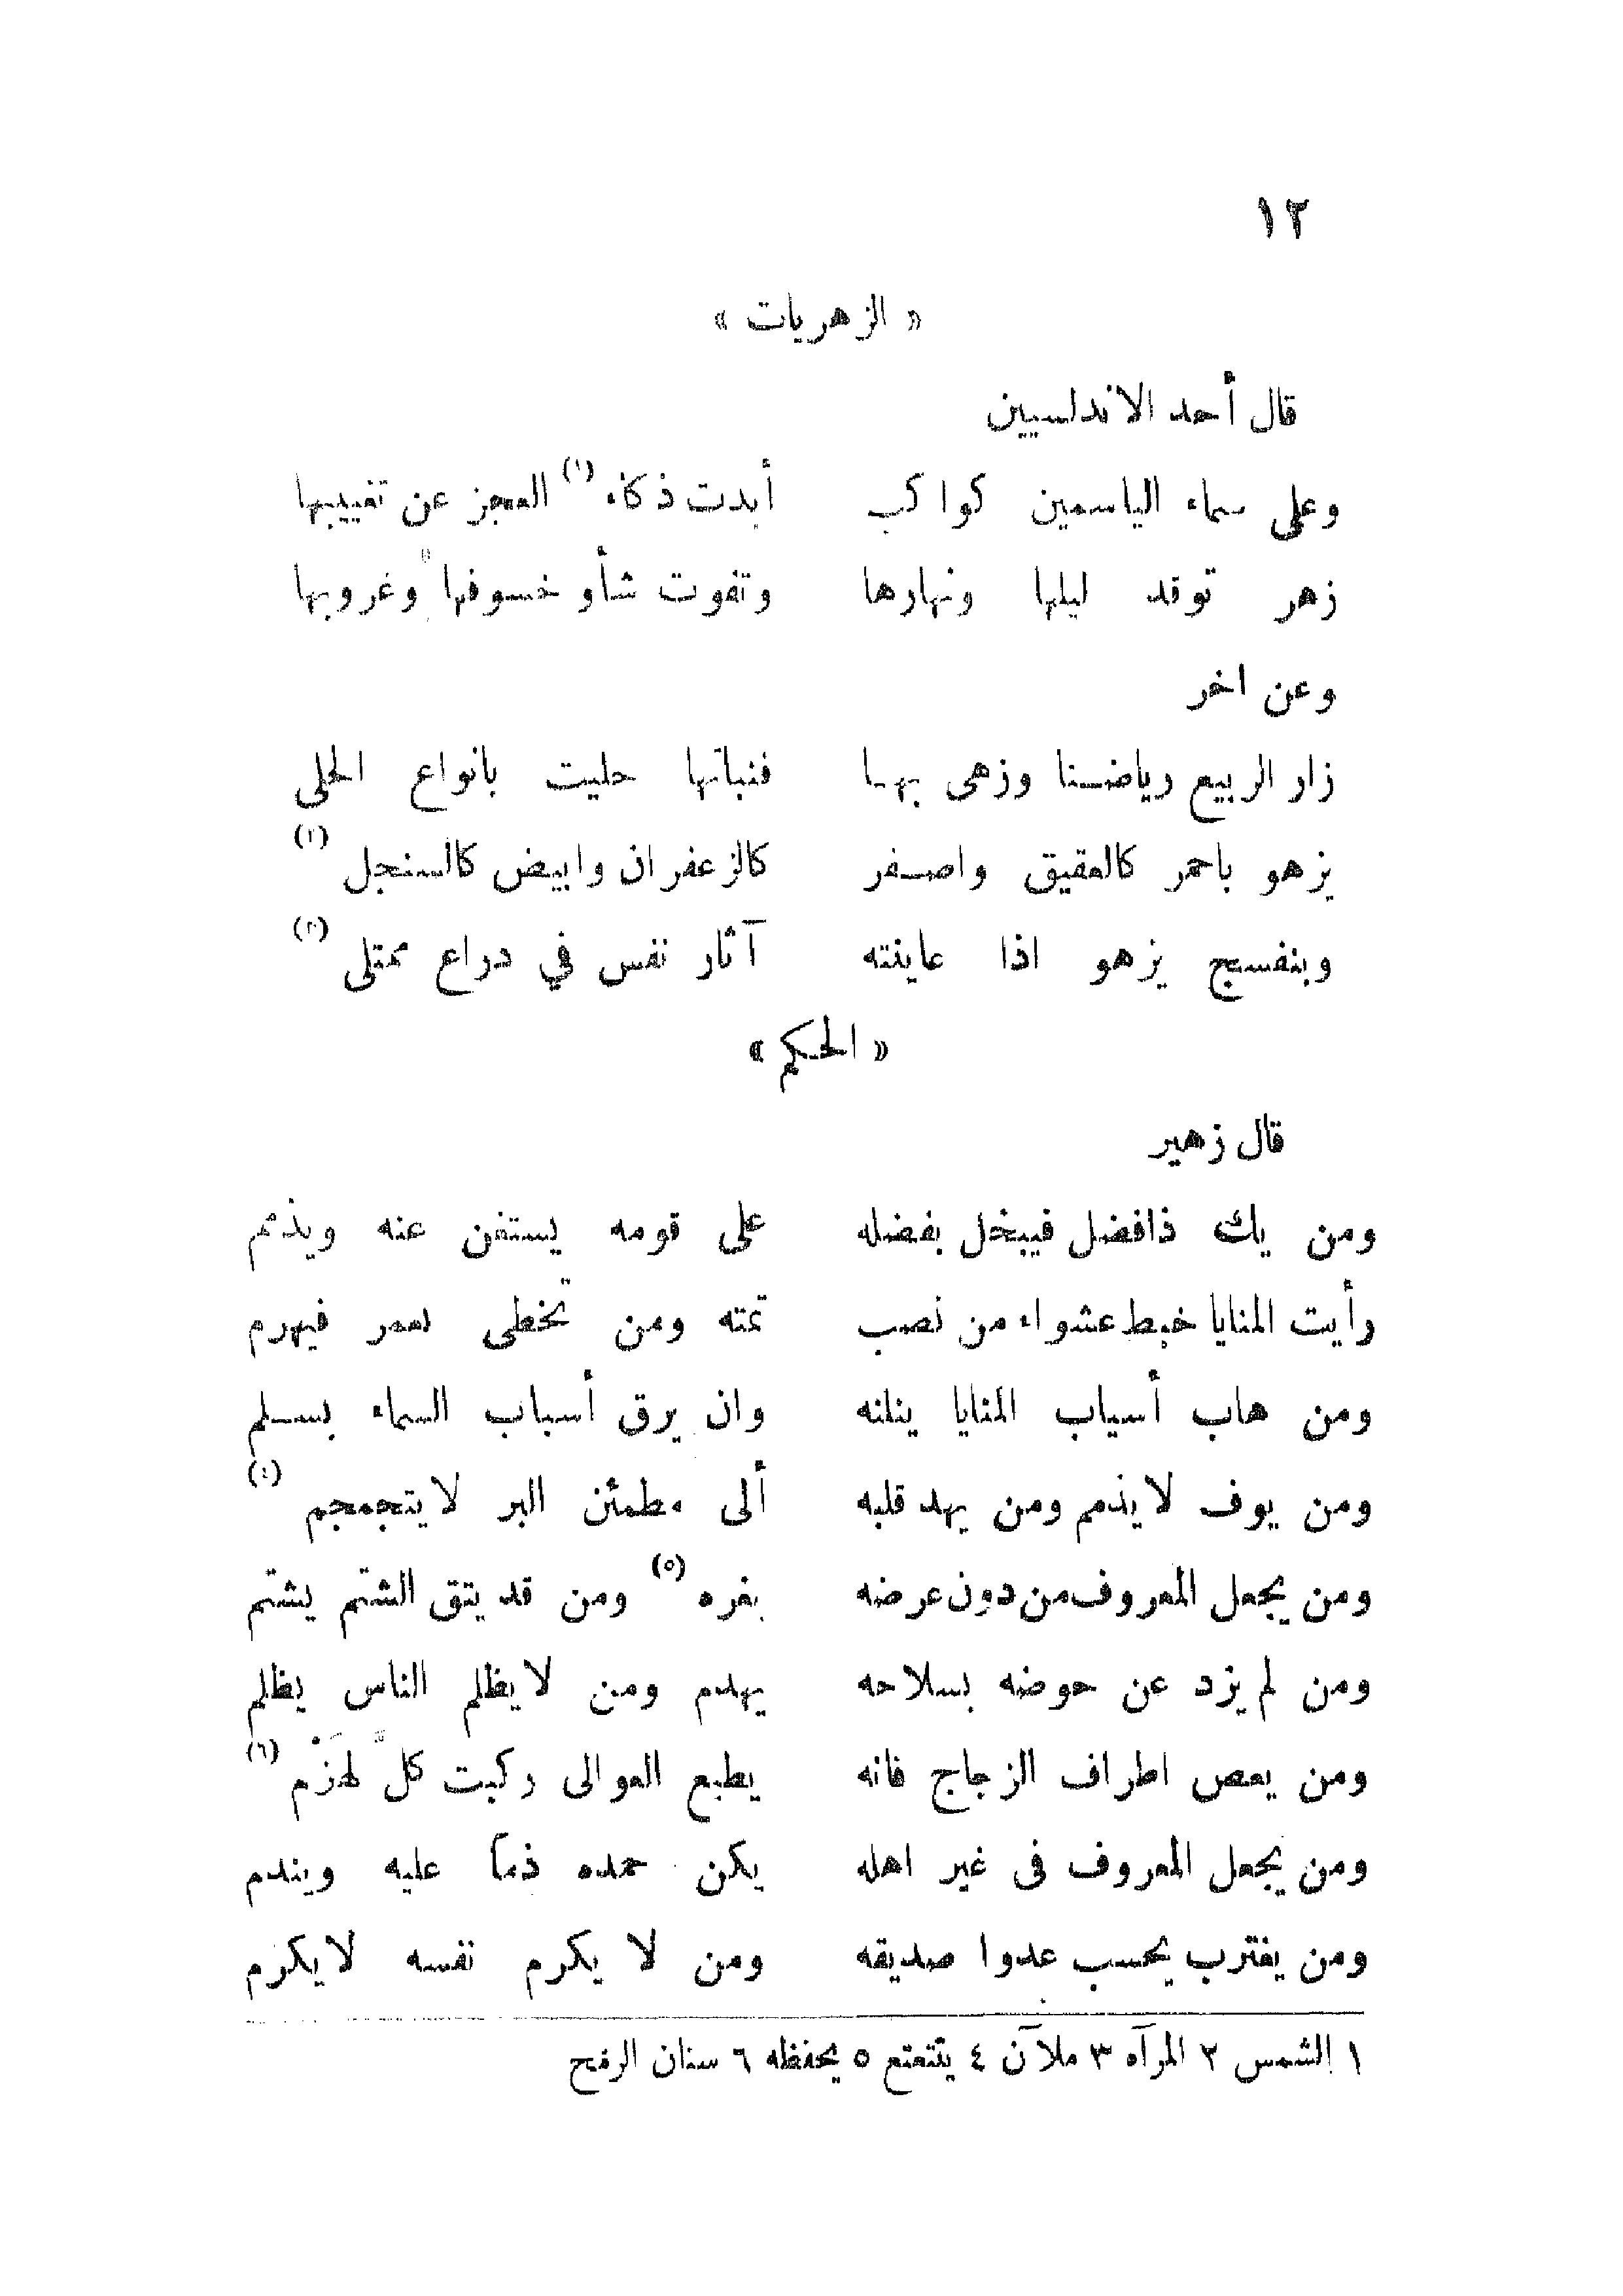 ١٢
« الزهريات »
قال أحد الاندلسيين
وعلى سماء الياسمين كواكب أبدت ذكاء (١) العجز عن تغييبها
زهر توقد ليلها ونهارها وتفوت شأو خسوفها وغروبها
وعن اخر
زار الربيع رياضنا وزهى بها فنباتها حليت بانواع الحلى
يزهو باحمر كالعقيق واصفر كالزعفران وابيض كالسنجل (٢)
وبنفسج يزهو اذا عاينته آثار نفس في دراع ممتلى (٣)
« الحكم »
قال زهير
ومن يك ذافضل فيبخل بفضله على قومه يستغن عنه ويذمم
رأيت المنايا خبط عشواء من تصب تمته ومن تخطى يعمر فيهرم
ومن هاب أسياب المنايا ينلنه وان يرق أسباب السماء بسلم
ومن يوف لايذمم ومن يهد قلبه ألى مطمئن البر لايتجمجم (٤)
ومن يجعل المعروف من دون عرضه يفره (٥) ومن قد يتق الشتم يشتم
ومن لم يزد عن حوضه بسلاحه يهدم ومن لايظلم الناس يظلم
ومن يعص اطراف الزجاج فانه يطيع العوالى ركبت كلَّ لهزَم (٦)
ومن يجعل المعروف فى غير اهله يكن حمده ذما عليه ويندم
ومن يغترب يحسب عدوا صديقه ومن لا يكرم نفسه لايكرم
١ الشمس ٢ المرآه ٣ ملآن ٤ يتتعتع ٥ يحفظه ٦ سنان الرمح